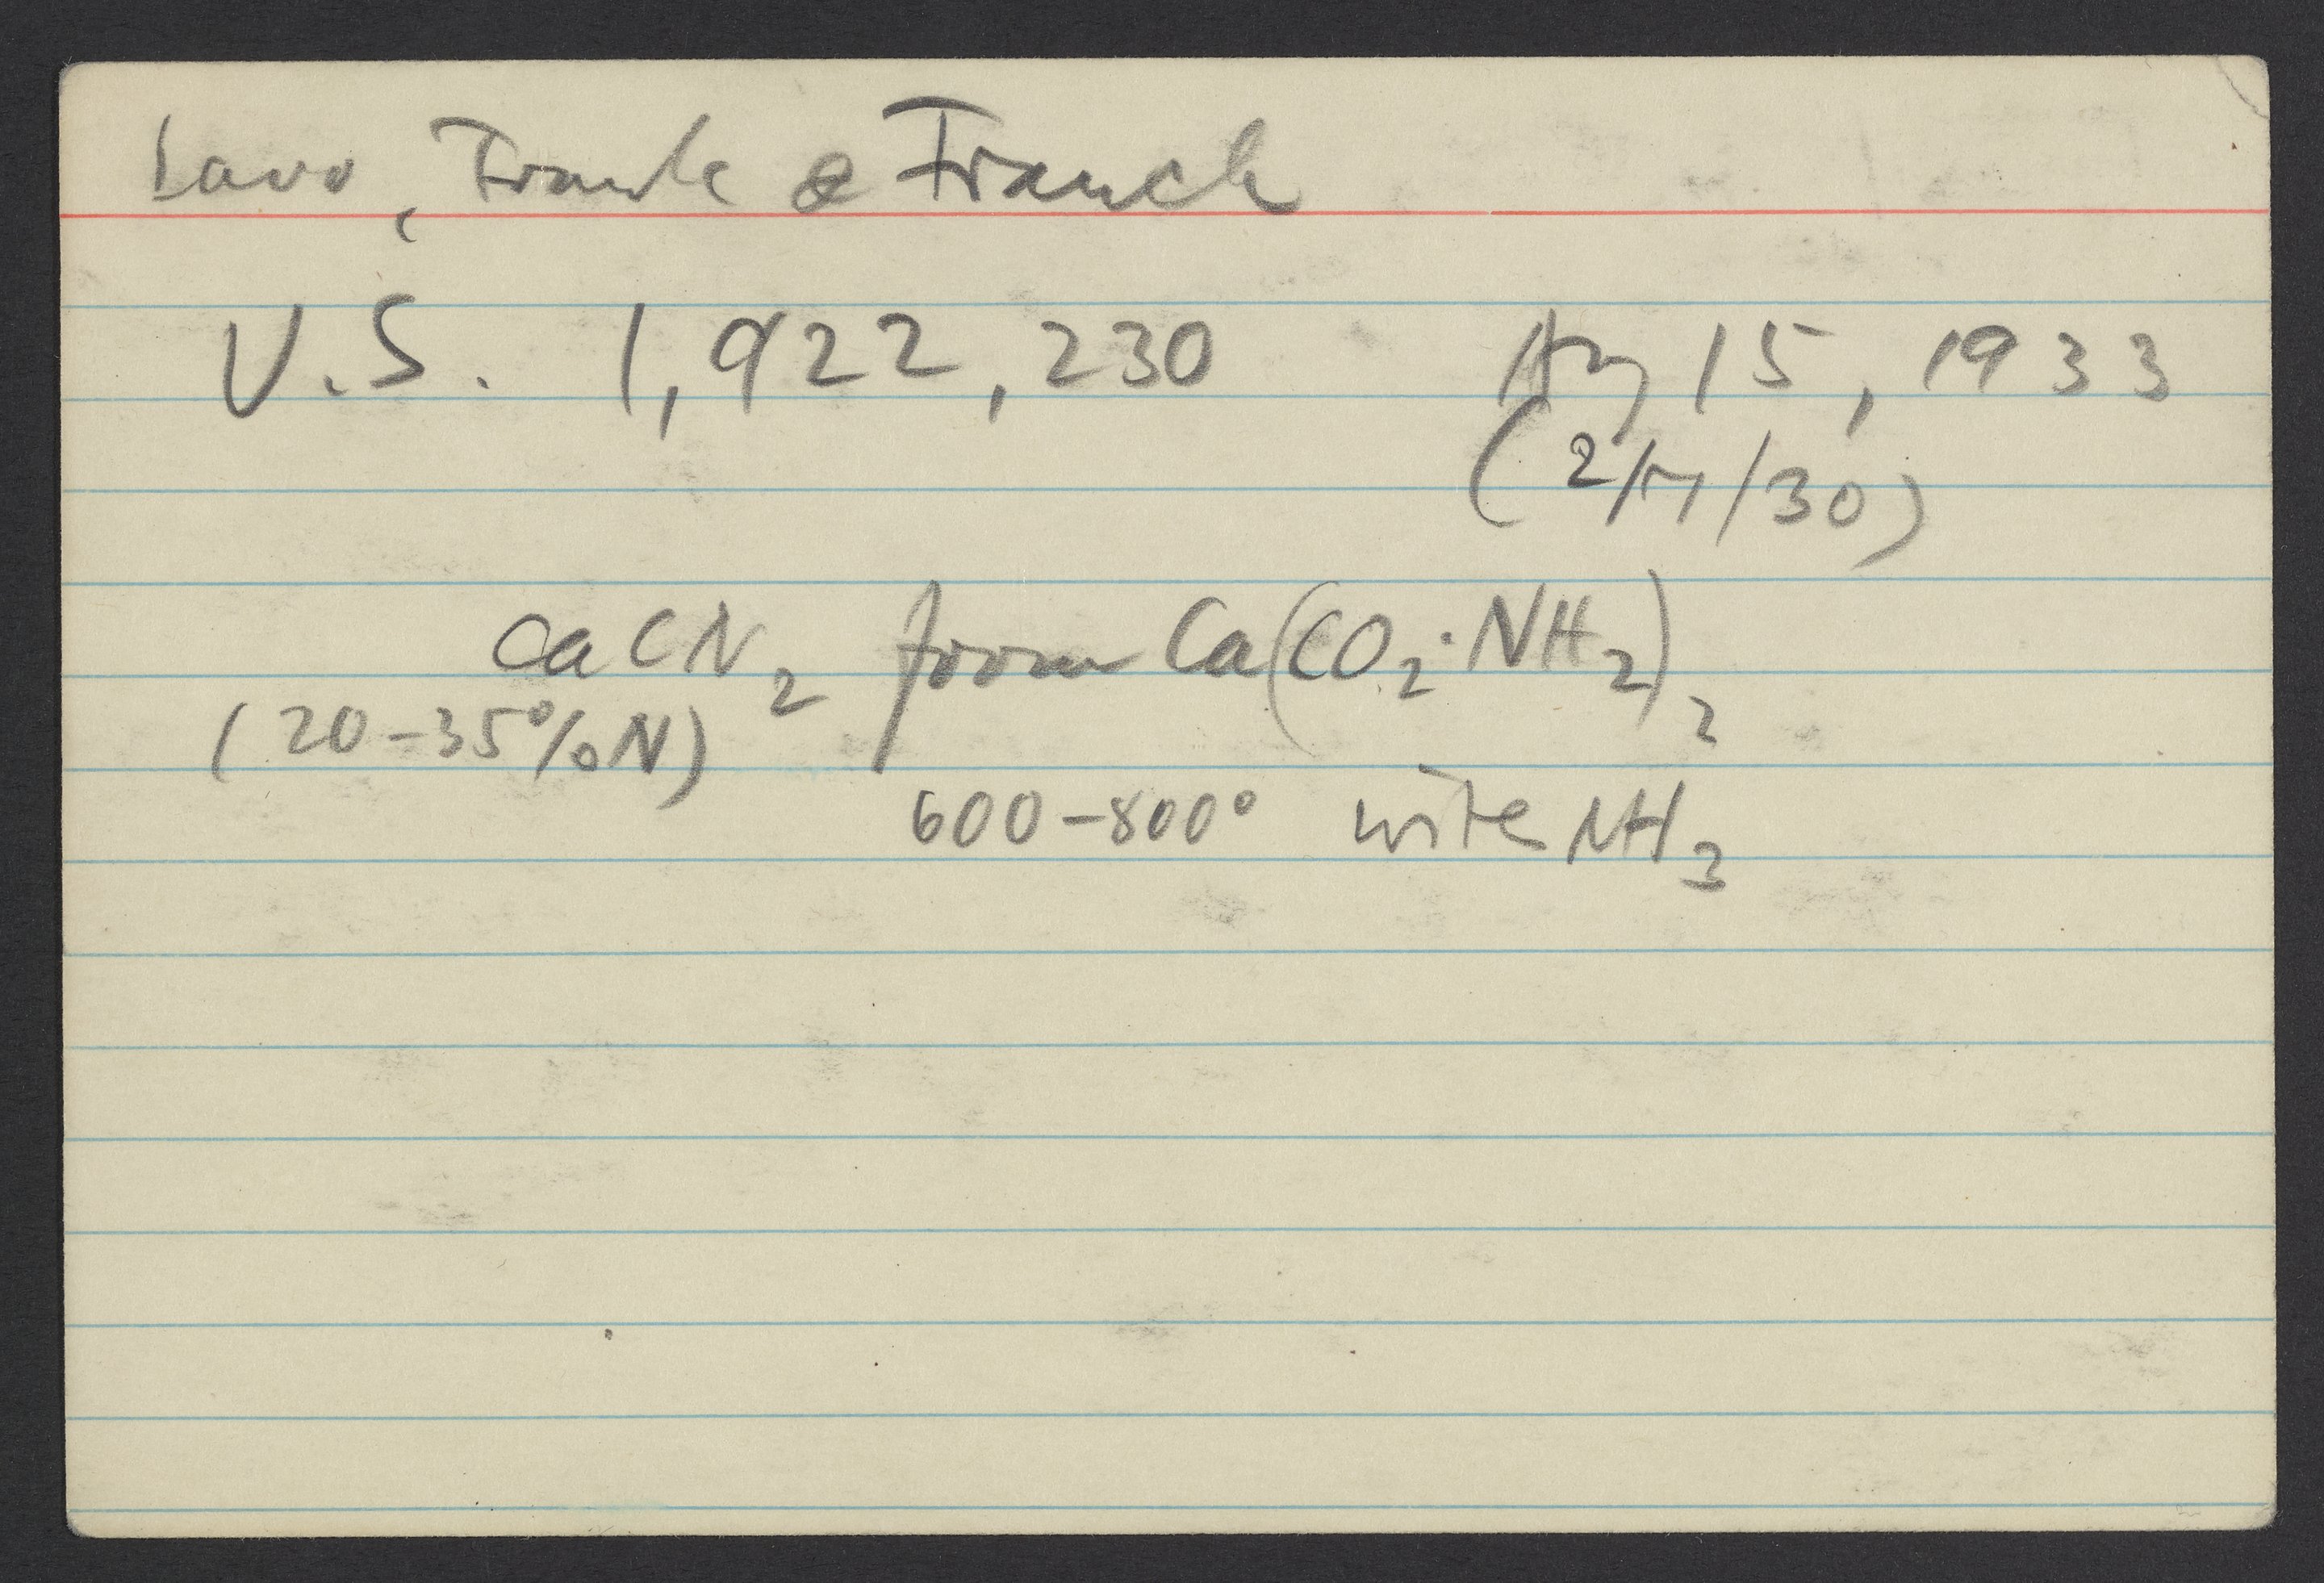 Caro, Frank & Franck
U.S. 1,922,230 Aug 15, 1933
(2/17/30)
CaCN2 from Ca(CO2·NH2)2
(20-35% N)
600-800° with NH3